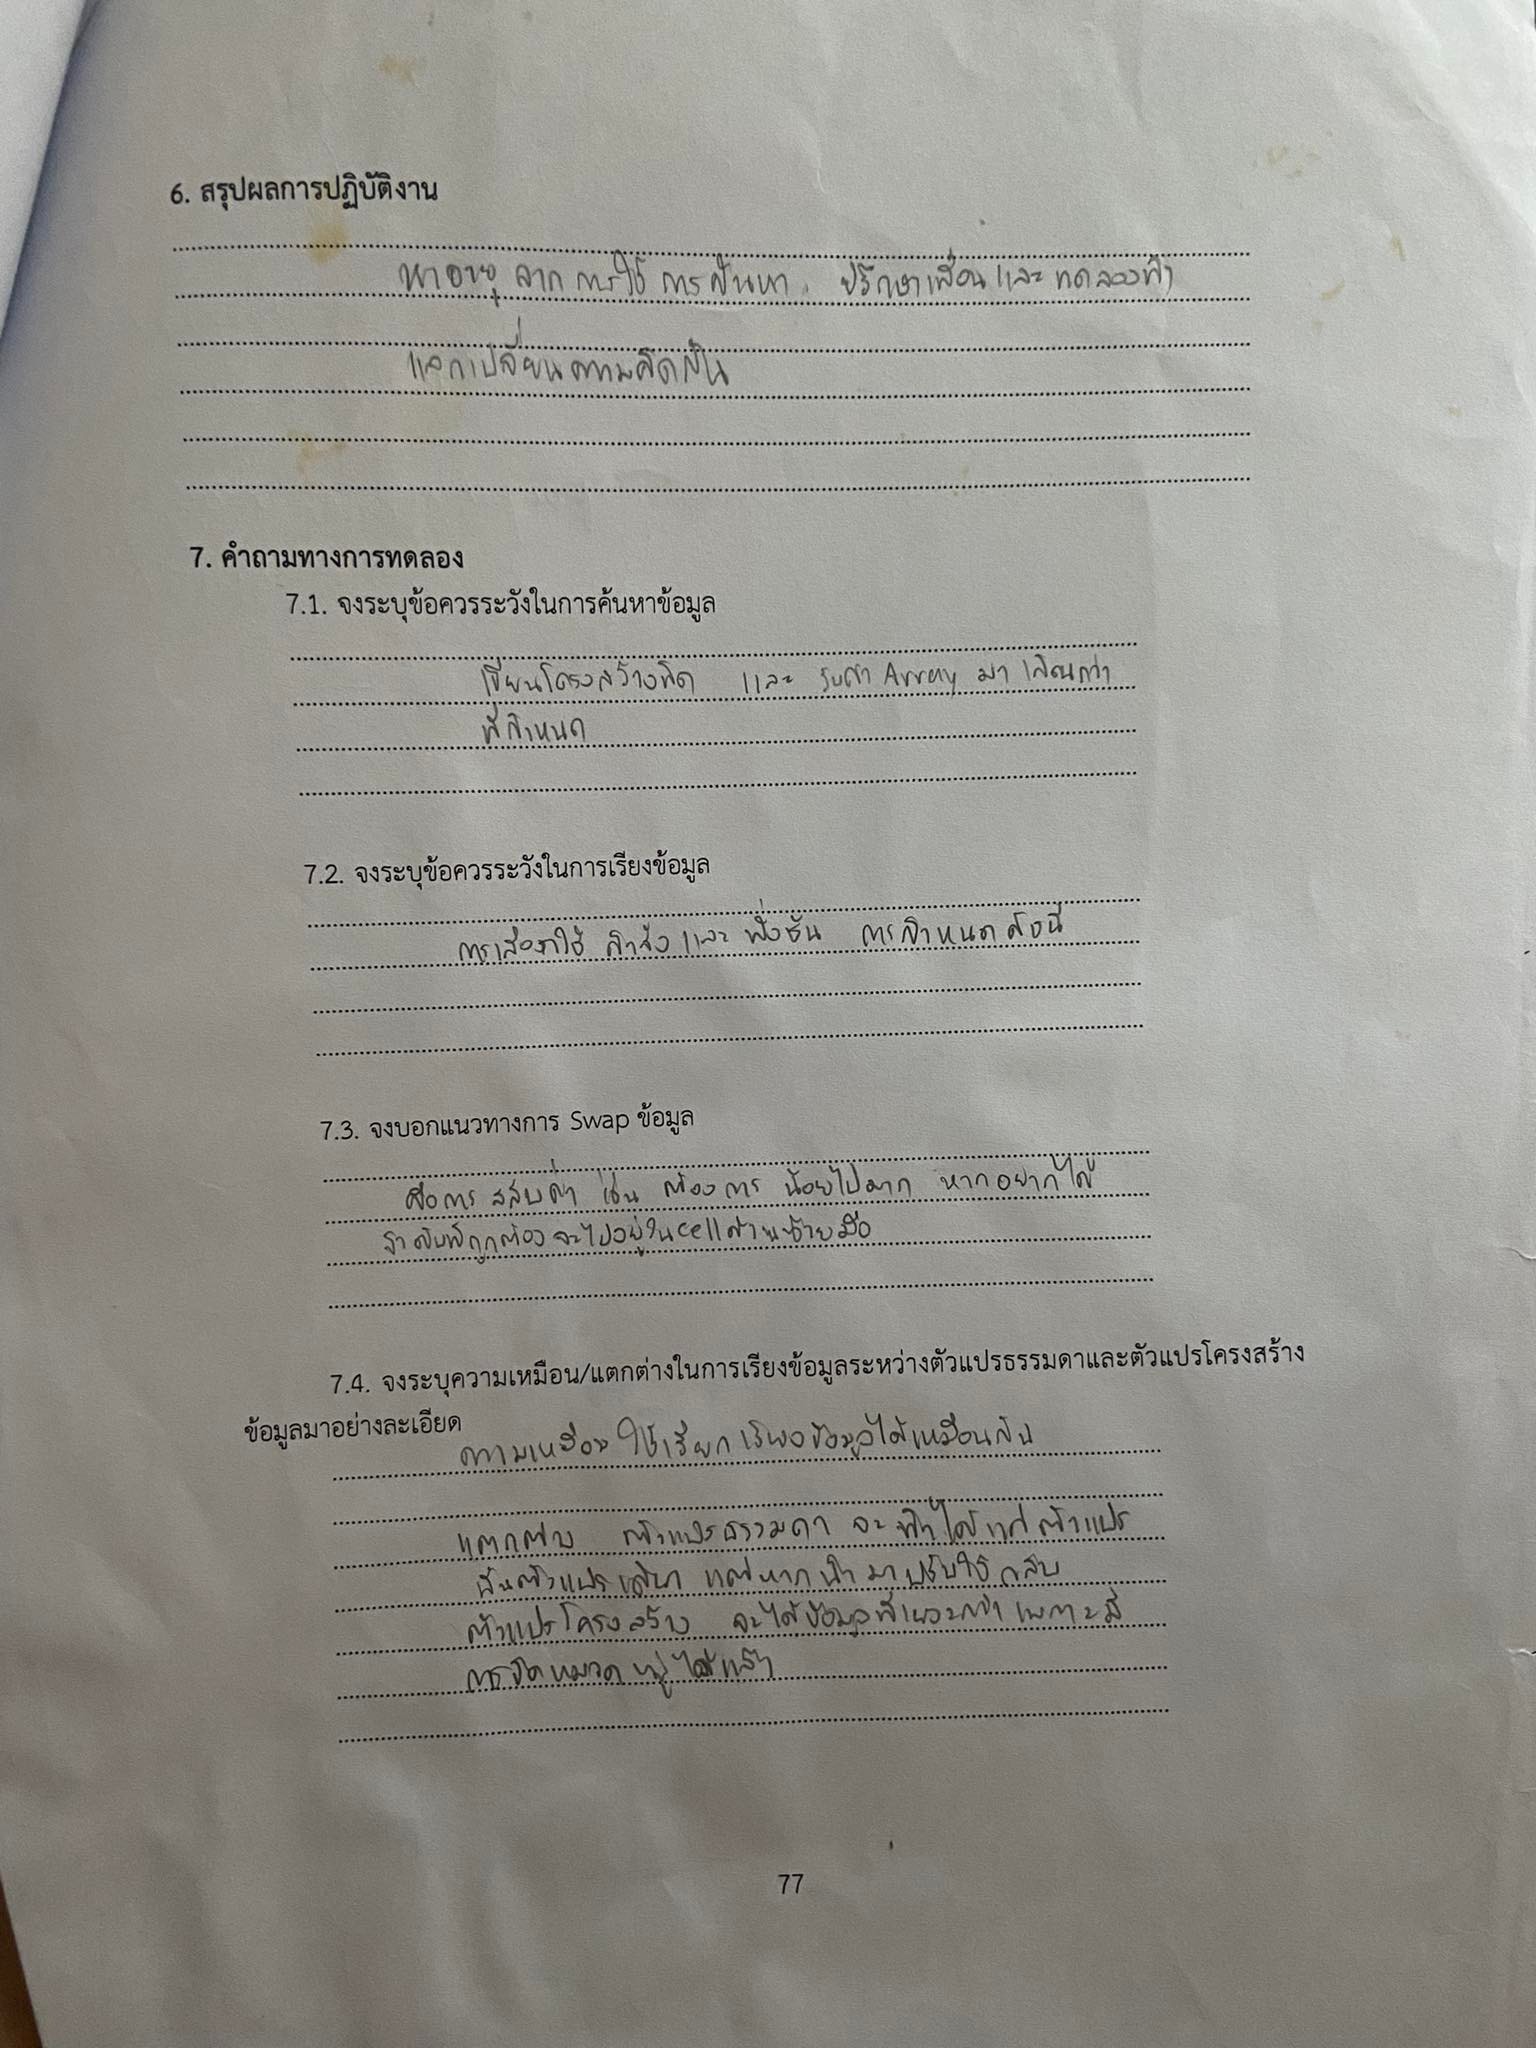 6. สรุปผลการปฏิบัติงาน
หาอายุ จาก การใช้ การค้นหา ปรึกษาเพื่อน และ ทดลองทำ
แลกเปลี่ยนความคิดกัน
7. คำถามทางการทดลอง
7.1. จงระบุข้อควรระวังในการค้นหาข้อมูล
เขียนโครงสร้างผิด และ รับค่า Array มา เกินกว่า
ที่กำหนด
7.2. จงระบุข้อควรระวังในการเรียงข้อมูล
การเลือกใช้ คำสั่ง และ ฟังชัน การกำหนด ดัชนี
7.3. จงบอกแนวทางการ Swap ข้อมูล
คือการ สลับค่า เช่น ต้องการ น้อยไปมาก หากอยากได้
ลำดับที่ถูกต้อง จะไปอยู่ใน cell ด้านซ้ายมือ
7.4. จงระบุความเหมือน/แตกต่างในการเรียงข้อมูลระหว่างตัวแปรธรรมดาและตัวแปรโครงสร้าง
ข้อมูลมาอย่างละเอียด
ความเหมือน ใช้เรียก เรียงข้อมูลได้เหมือนกัน
แตกต่าง ตัวแปรธรรมดา จะ ทำได้แค่ ตัวแปร
นั้นตัวแปรเดียว แต่หาก นำ มาปรับใช้ กลับ
ตัวแปรโครงสร้าง จะได้ข้อมูลที่เยอะกว่า เพราะมี
การจัดหมวดหมู่ได้แล้ว
77